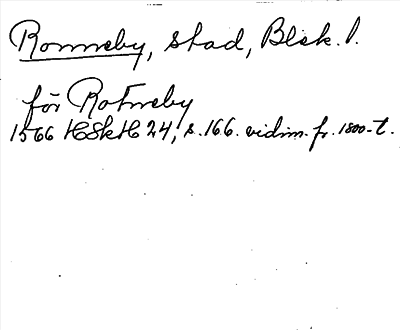 Ronneby, stad, Blek. l.
för Rotneby
1566 HSkH 24, s. 166. vidim. fr. 1800-t.